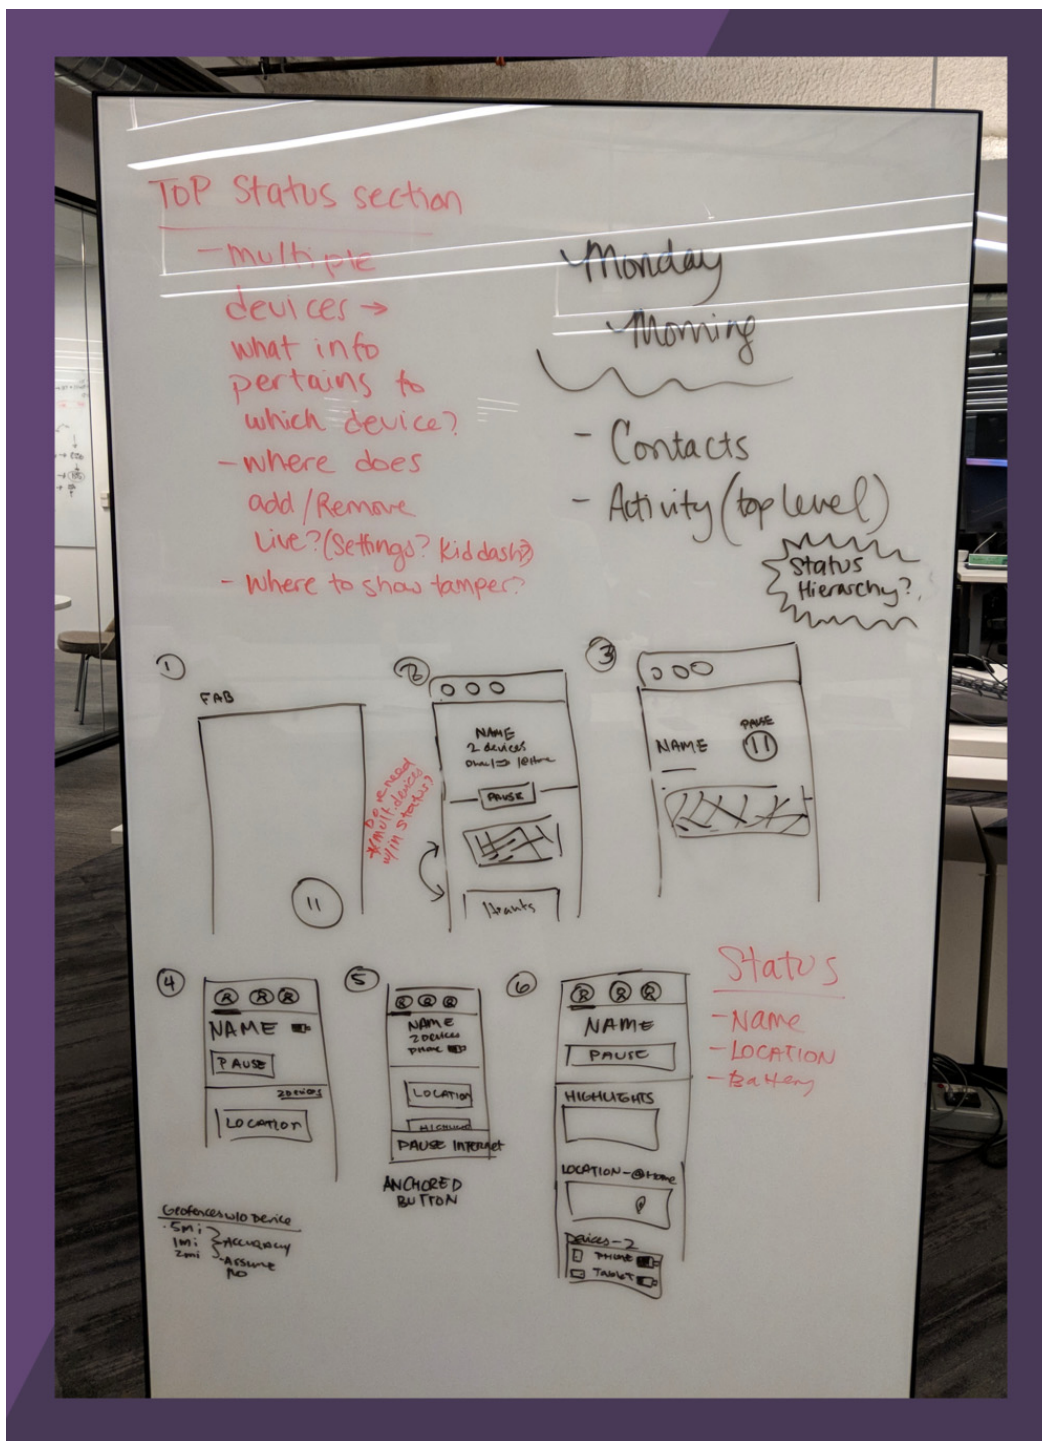 TOP Status section
- multiple
devices →
what info
pertains to
which device?
- where does
add/Remove
Live? (Settings? Kid dash?)
- Where to show tamper?
Monday
Morning
- Contacts
- Activity (top level)
Status
Hierarchy?
1
FAB
2
NAME
2 devices
PAUSE
Do we need
*mult. devices
w/in status?
3
PAUSE
NAME
4
NAME
PAUSE
2 DEVICES
LOCATION
5
NAME
2 DEVICES
PHONE
LOCATION
PAUSE INTERNET
ANCHORED
BUTTON
6
NAME
PAUSE
HIGHLIGHTS
LOCATION - @Home
Devices - 2
PHONE
TABLET
Status
- Name
- LOCATION
- Battery
Geofences w/o Device
.5mi
1mi
2mi
- Accuracy
- Assume
no